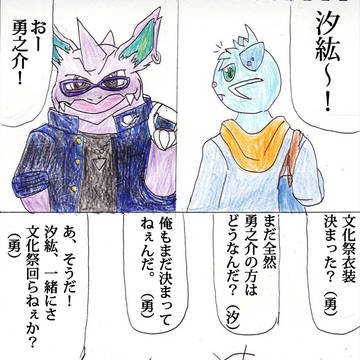 汐紘～！
おー
勇之介！
文化祭衣装
決まった？（勇）
まだ全然
勇之介の方は
どうなんだ？（汐）
俺もまだ決まって
ねぇんだ。（勇）
あ、そうだ！
汐紘、一緒にさ
文化祭回らねぇか？
（勇）